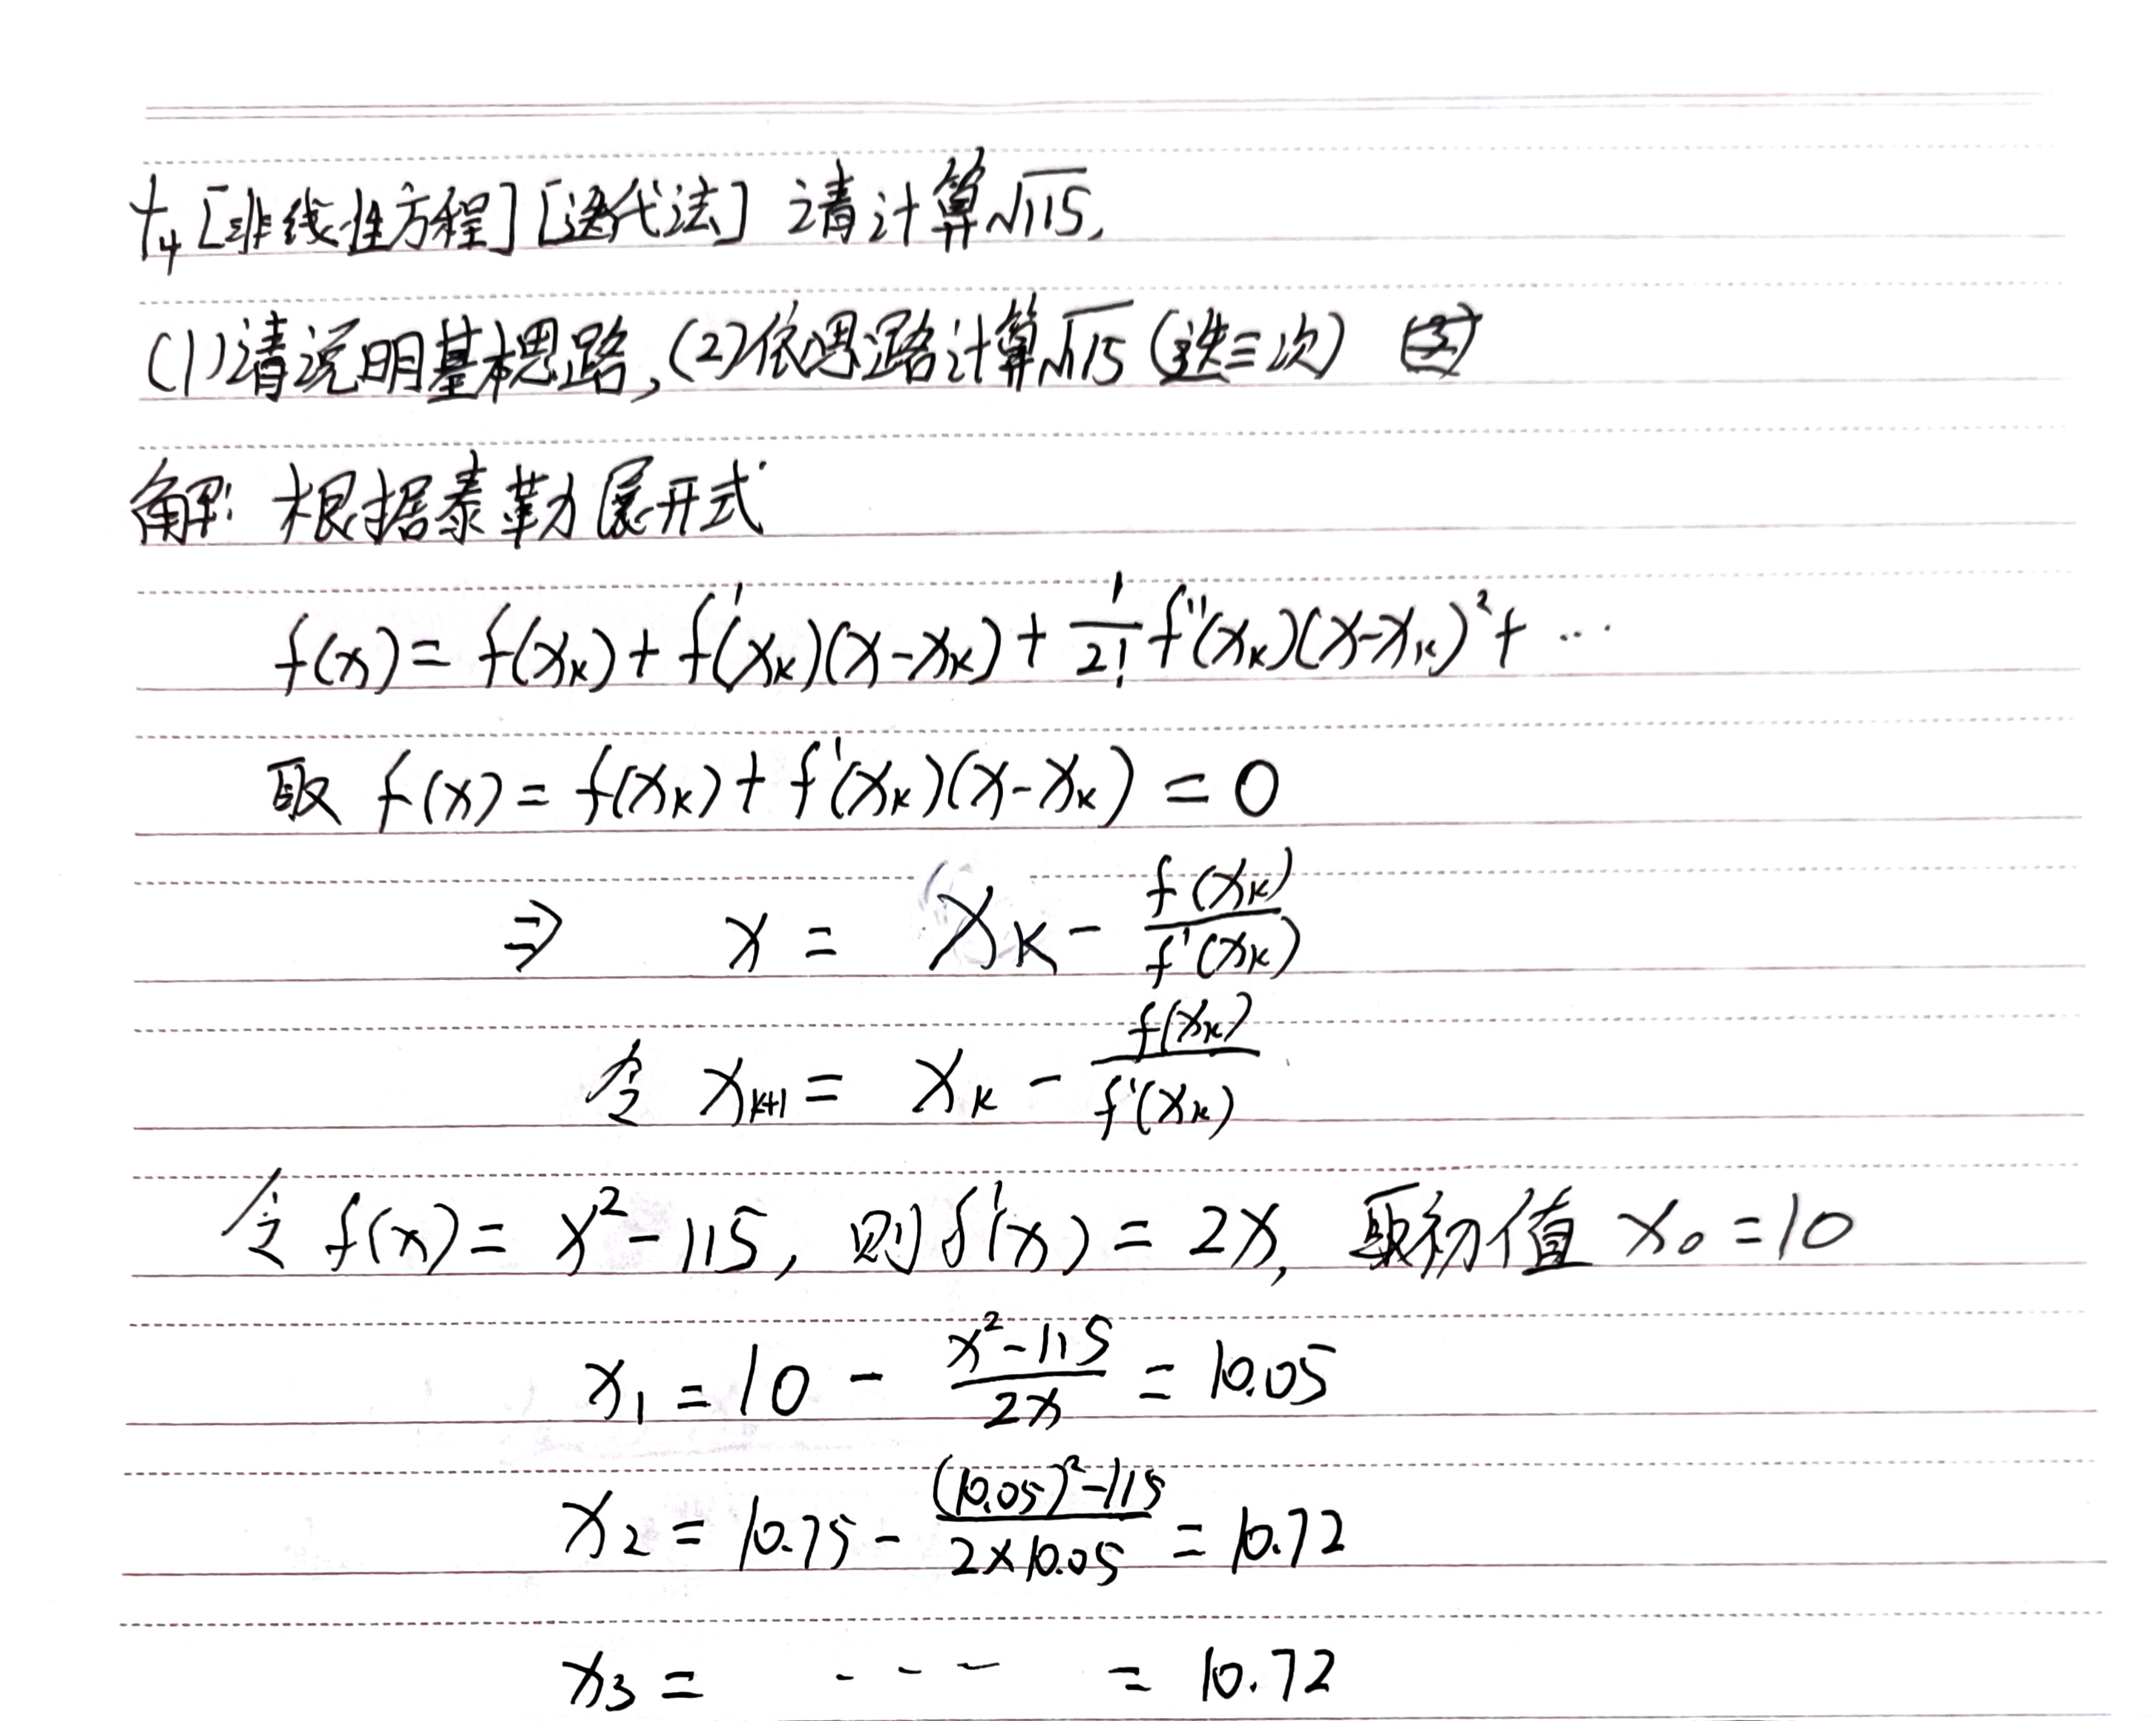 十4 [非线性方程][迭代法] 请计算√115,
(1)请说明基本思路,(2)依思路计算√115 (迭三次)
解: 根据泰勒展开式
f(x) = f(xₖ) + f'(xₖ)(x-xₖ) + 1/2! f''(xₖ)(x-xₖ)² + ...
取 f(x) = f(xₖ) + f'(xₖ)(x-xₖ) = 0
⇒ x = xₖ - f(xₖ)/f'(xₖ)
令 xₖ₊₁ = xₖ - f(xₖ)/f'(xₖ)
令 f(x) = x² - 115, 则 f'(x) = 2x, 取初值 x₀ = 10
x₁ = 10 - (x²-115)/2x = 10.05
x₂ = 10.75 - ((10.05)²-115)/(2×10.05) = 10.72
x₃ = - - - = 10.72